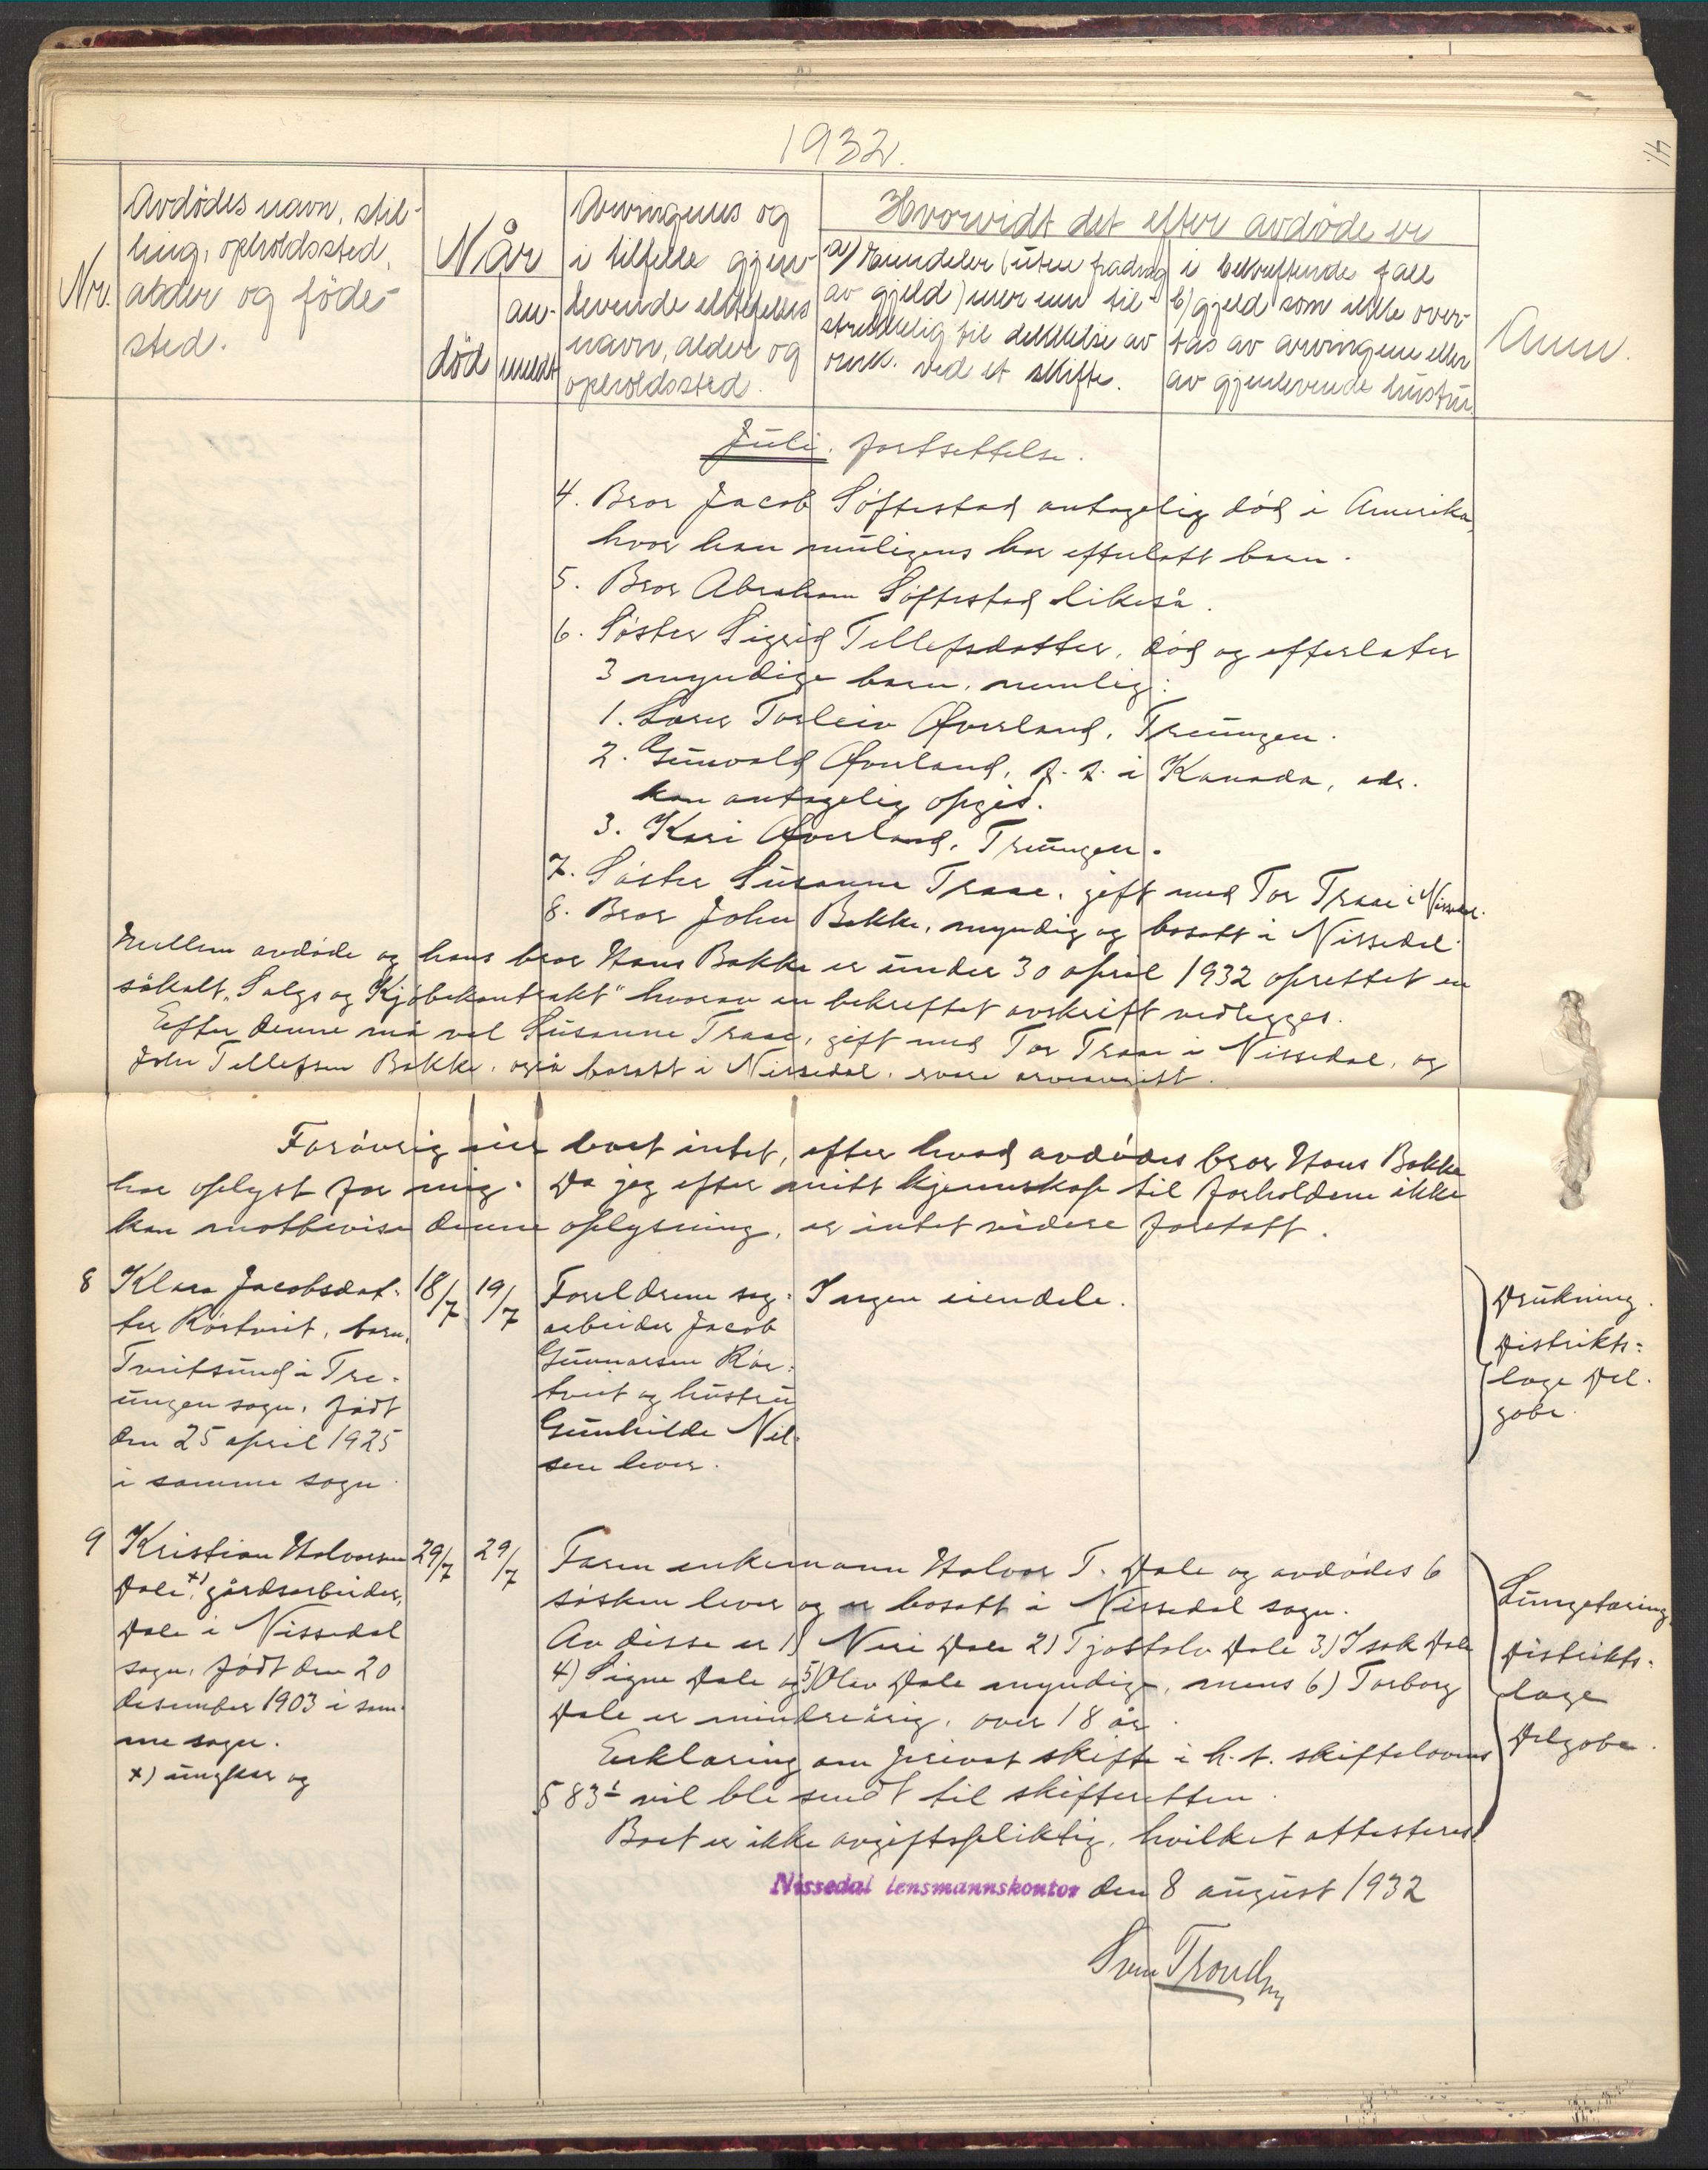 1932.
41.
Nr.
Avdödes navn, stil-
ling, opholdssted,
alder og föde-
sted.
Når
död
an-
meldt
Arvingenes og
i tilfelle gjen-
levende ektefelles
navn, alder og
opholdssted.
Hvorvidt det efter avdöde er
a) Eiendeler (uten fradrag
av gjeld) mer enn til-
strekkelig til dekkelse av
omk. ved et skifte.
i betreffende fall
b) gjeld som ikke over-
tas av arvingene eller
av gjenlevende hustru.
Anm.
Juli. fortsettelse.
4. Bror Jacob Söftestad antagelig död i Amerika,
hvor han muligens har efterlatt barn.
5. Bror Abraham Söftestad likeså.
6. Söster Sigrid Tellefsdatter, död og efterlater
3 myndige barn, nemlig:
1. Lærer Torleiv Øverland, Treungen.
2. Gunvald Øverland, p. t. i Kanada, adr.
kan antagelig opgis.
3. Kari Øverland, Treungen.
7. Söster Susanne Traae, gift med Tor Traae i Nissedal.
8. Bror John Bakke, myndig og bosatt i Nissedal.
Mellem avdöde og hans bror Hans Bakke er under 30 april 1932 oprettet en
såkalt "Salgs og Kjöbekontrakt" hvorav en bekreftet avskrift vedlegges.
Efter denne må vel Susanne Traae, gift med Tor Traae i Nissedal, og
John Tellefsen Bakke, også bosatt i Nissedal, svare arveavgift.
Forövrig eier boet intet, efter hvad avdödes bror Hans Bakke
har oplyst for mig. Da jeg efter mitt kjennskap til forholdene ikke
kan motbevise denne oplysning, er intet videre foretatt.
8
Klara Jacobsdat-
ter Rörtveit, barn,
Tveitsund i Tre-
ungen sogn, födt
den 25 april 1925
i samme sogn.
18/7
19/7
Foreldrene sag-
arbeider Jacob
Gunnarsen Rör-
tveit og hustru
Gunhilde Nil-
sen lever.
Ingen eiendele.
Drukning.
Distrikts-
læge Del-
gobe.
9
Kristian Halvorsen
Dale x), gårdsarbeider,
Dale i Nissedal
sogn, födt den 20
desember 1903 i sam-
me sogn.
x) ungkar og
29/7
29/7
Faren enkemann Halvor T. Dale og avdödes 6
sösken lever og er bosatt i Nissedal sogn.
Av disse er 1) Neri Dale 2) Tjostolv Dale 3) Isak Dale
4) Signe Dale og 5) Olav Dale myndige, mens 6) Torborg
Dale er mindreårig, over 18 år.
Erklæring om privat skifte i h. t. skiftelovens
§ 83 vil ble sendt til skifteretten.
Boet er ikke avgiftspliktig, hvilket attesteres.
Lungetæring
Distrikts-
læge
Delgobe.
Nissedal lensmannskontor den 8 august 1932